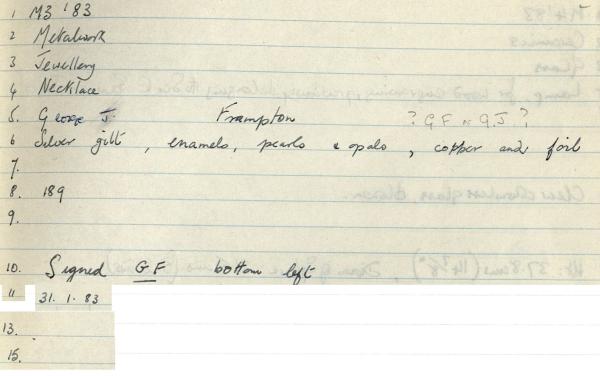 1 M3 '83
2 Metalwork
3 Jewellery
4 Necklace
5. George J. Frampton ? G F or G J ?
6 Silver gilt, enamels, pearls & opals, copper and foil
7.
8. 189
9.
10. Signed GF bottom left
11 31. 1. 83
13.
15.